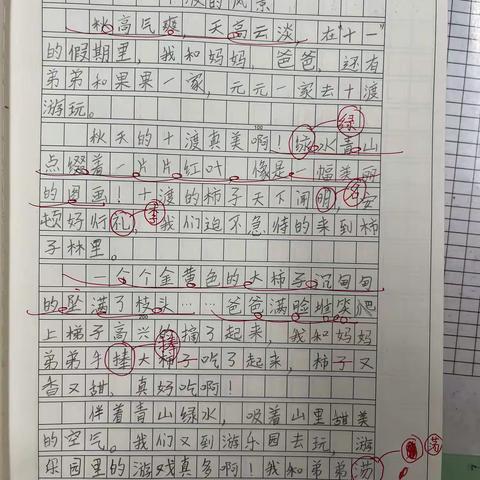 十渡的风景
秋高气爽，天高云淡，在"十一"
的假期里，我和妈妈，爸爸，还有
弟弟和果果一家，元元一家去十渡
游玩。
绿
秋天的十渡真美啊！绿水青山
点缀着一片片红叶，像是一幅美丽
的图画！十渡的柿子天下闻明，安
名
顿好行礼，我们迫不急待的来到柿
李
子林里。
一个个金黄色的大柿子沉甸甸
的坠满了枝头……爸爸满脸堆笑爬
上梯子高兴的摘了起来，我和妈妈
捧
弟弟手捧大柿子吃了起来，柿子又
香又甜，真好吃啊！
伴着青山绿水，吸着山里甜美
的空气。我们又到游乐园去玩，游
乐园里的游戏真多啊！我和弟弟